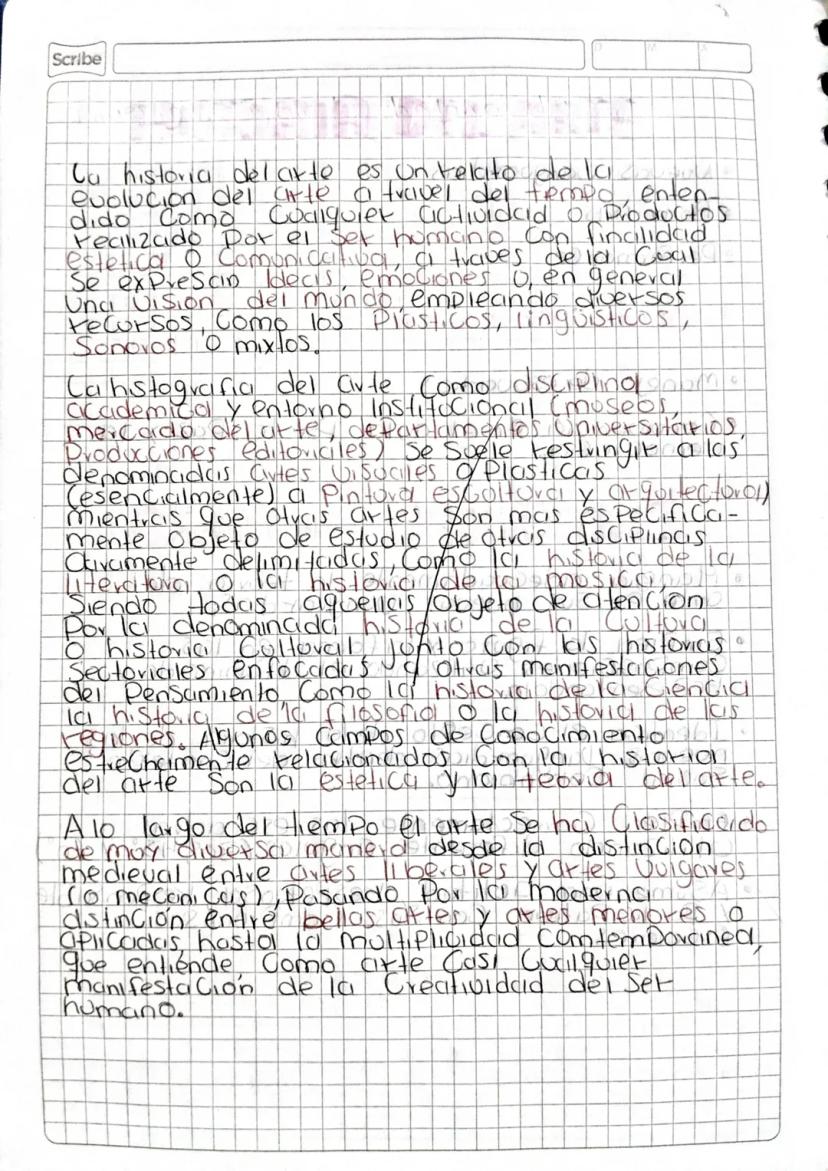 Scribe
La historia del arte es un relato de la
evolución del arte a travel del tiempo, enten-
dido como cualquier actividad o Productos
realizado Por el ser humano con finalidad
estetica o Comunicativa, a traves de la Cual
Se expresan Ideas, emociones o, en general
una visión del mundo, empleando diversos
recursos, Como los Plasticos, lingüisticos,
Sonoros o mixtos.
La histografia del arte Como disciplina
academica y entorno Institucional (museos,
mercado del arte, departamentos Universitarios,
Producciones editoriales) se suele restringir a las
denominadas artes visuales o Plasticas
(esencialmente) a Pintura escultura y arquitectura)
mientras que otras artes son mas especifica-
mente objeto de estudio de otras disciplinas
claramente delimitadas, Como la historia de la
literatura o la historia de la musica
Siendo todas aquellas objeto de atención
Por la denominada historia de la Cultura
o historia Cultural junto con las historias
Sectoriales enfocadas a otras manifestaciones
del Pensamiento Como la historia de la Ciencia
la historia de la filosofia o la historia de las
regiones. Algunos Campos de Conocimiento
estrechamente relacionados Con la historia
del arte Son la estetica y la teoria del arte.
A lo largo del tiempo el arte se ha Clasificado
de muy diversa manera desde la distinción
medieval entre artes liberales y artes Vulgares
(o mecanicas), Pasando Por la moderna
distinción entre bellas artes y artes menores o
aplicadas, hasta la multiplicidad Comtemporanea,
que entiende Como arte Casi Cualquier
manifestación de la Creatividad del Ser
humano.